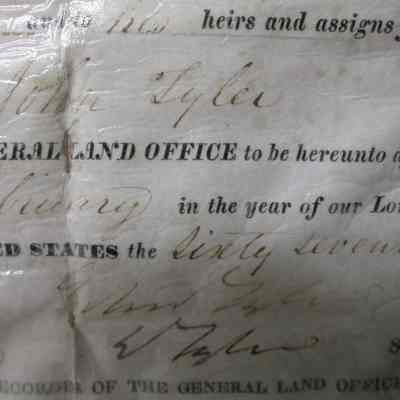 and to his heirs and assigns
John Tyler
ERAL LAND OFFICE to be hereunto a
bruary in the year of our Lo
ED STATES the Sixty seven
John Tyler
Tyler
ECORDER OF THE GENERAL LAND OFFICE